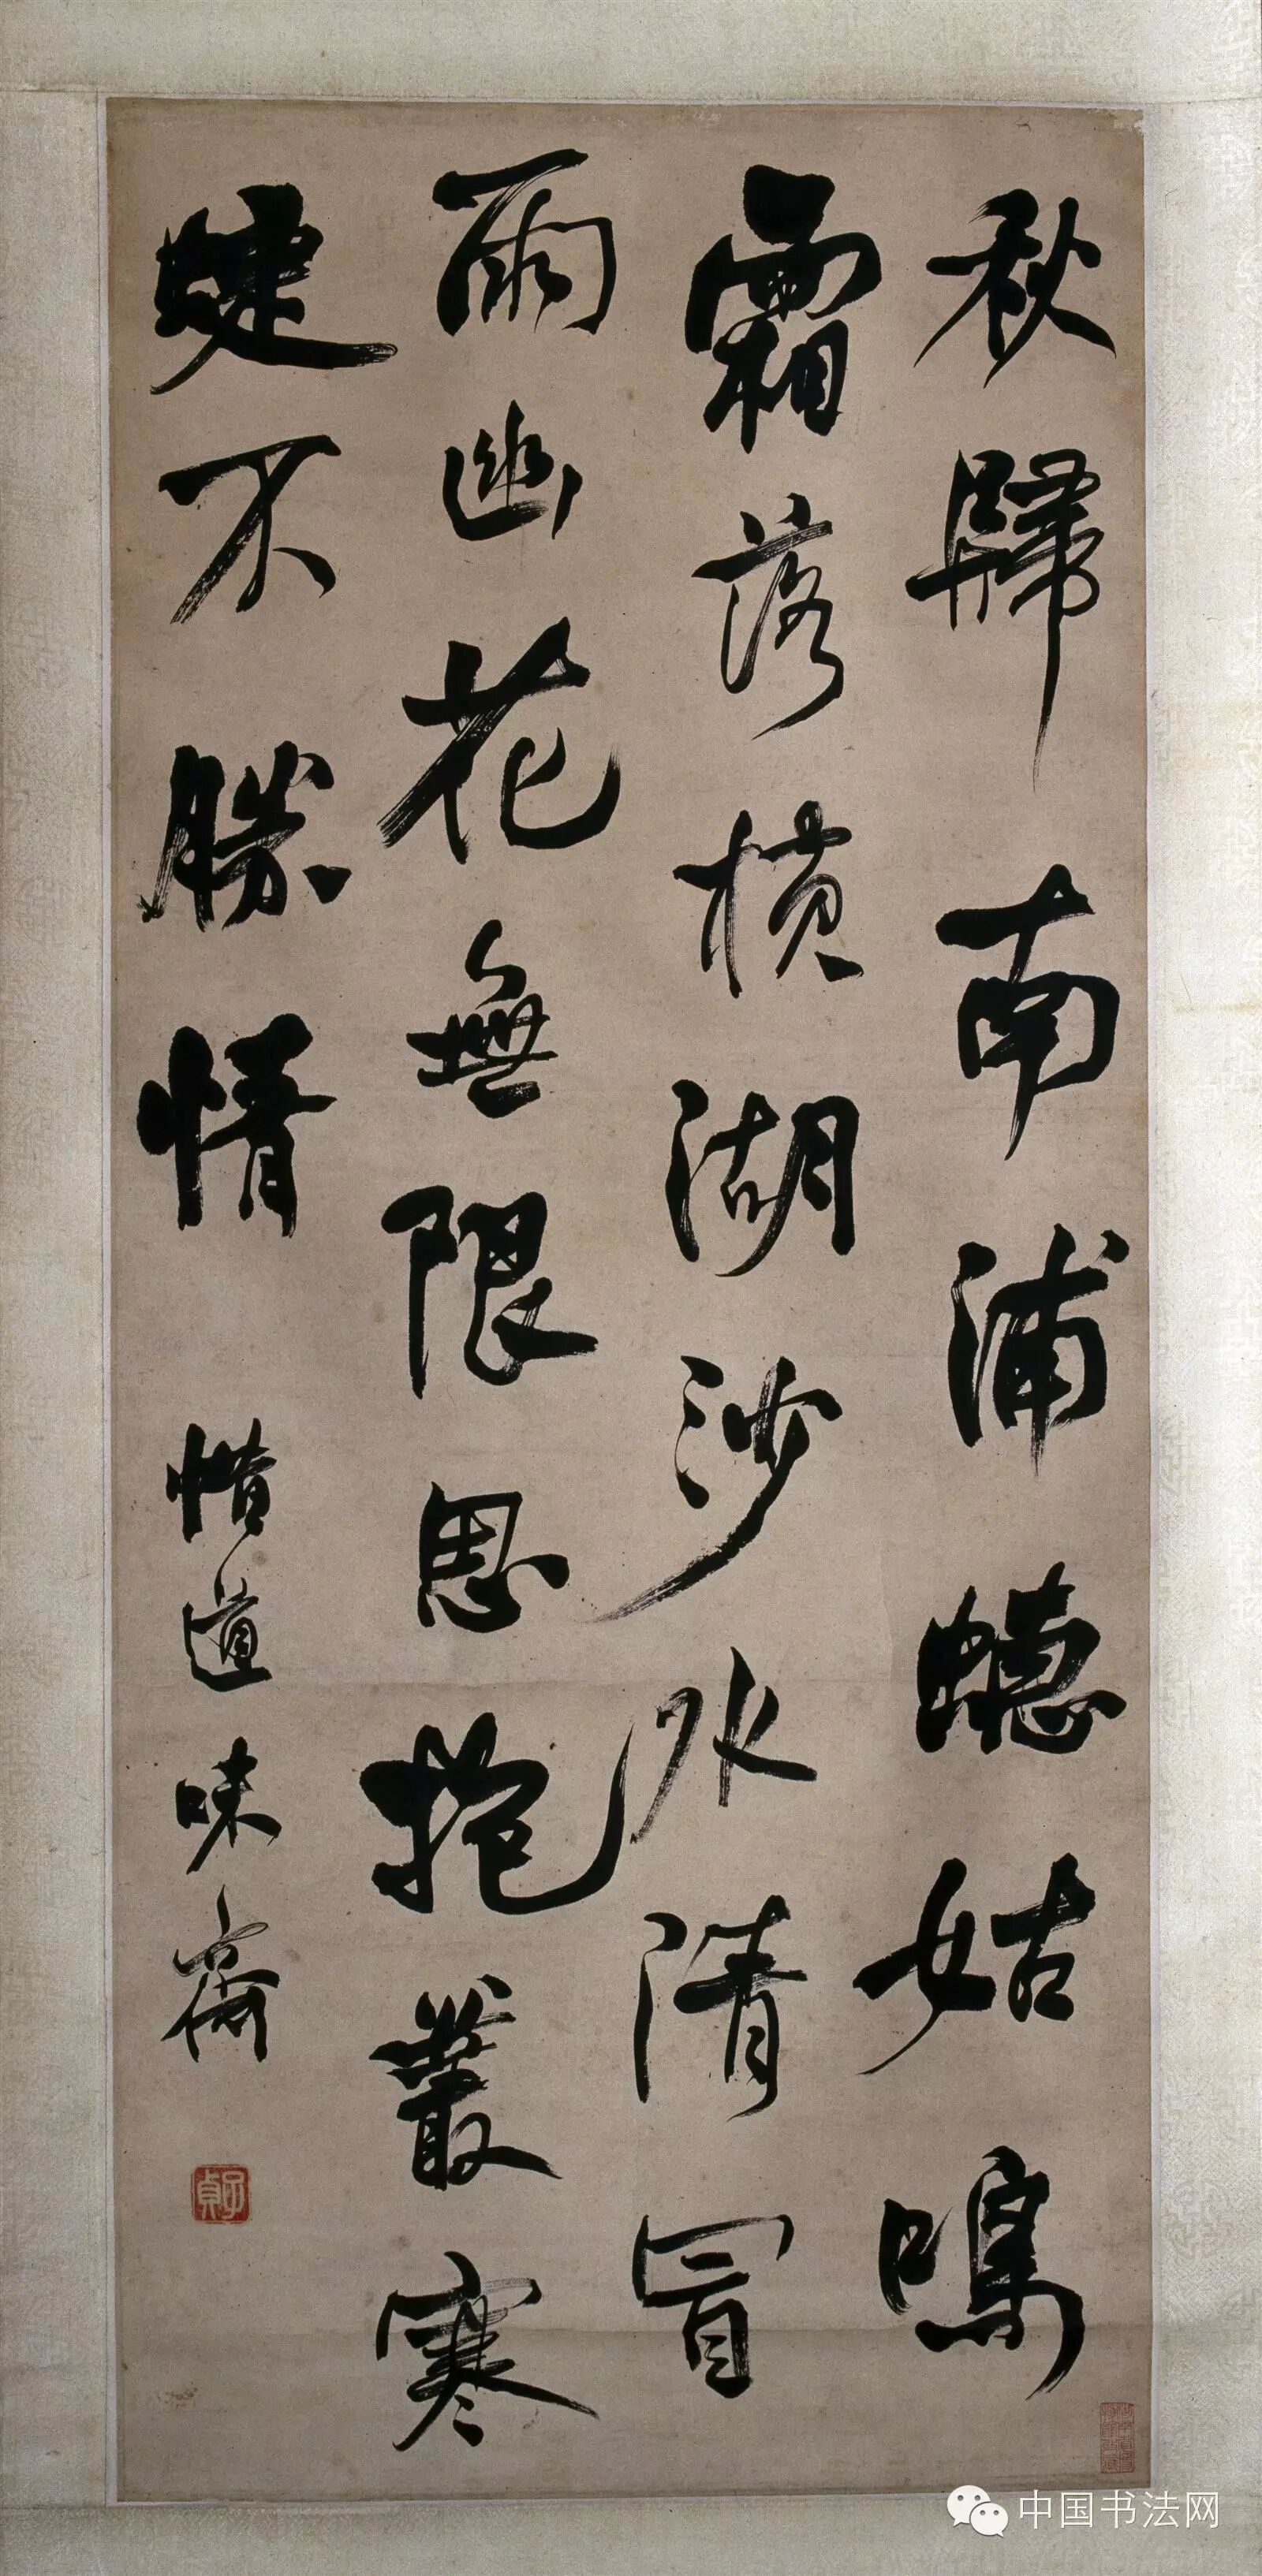 秋歸南浦蟪姑鳴
霜落橫湖沙水清冒
雨幽花無限思抱叢寒
蜨不勝情 惜道味齋
子貞
中国书法网